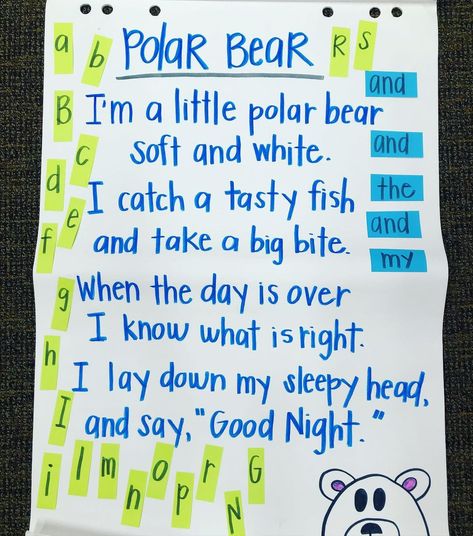 a b POLAR BEAR R S
and
B I'm a little polar bear
and
c soft and white.
d I catch a tasty fish the
e and
f and take a big bite. my
g When the day is over
I know what is right.
h I lay down my sleepy head,
I and say, "Good Night."
i l m n o p r N G